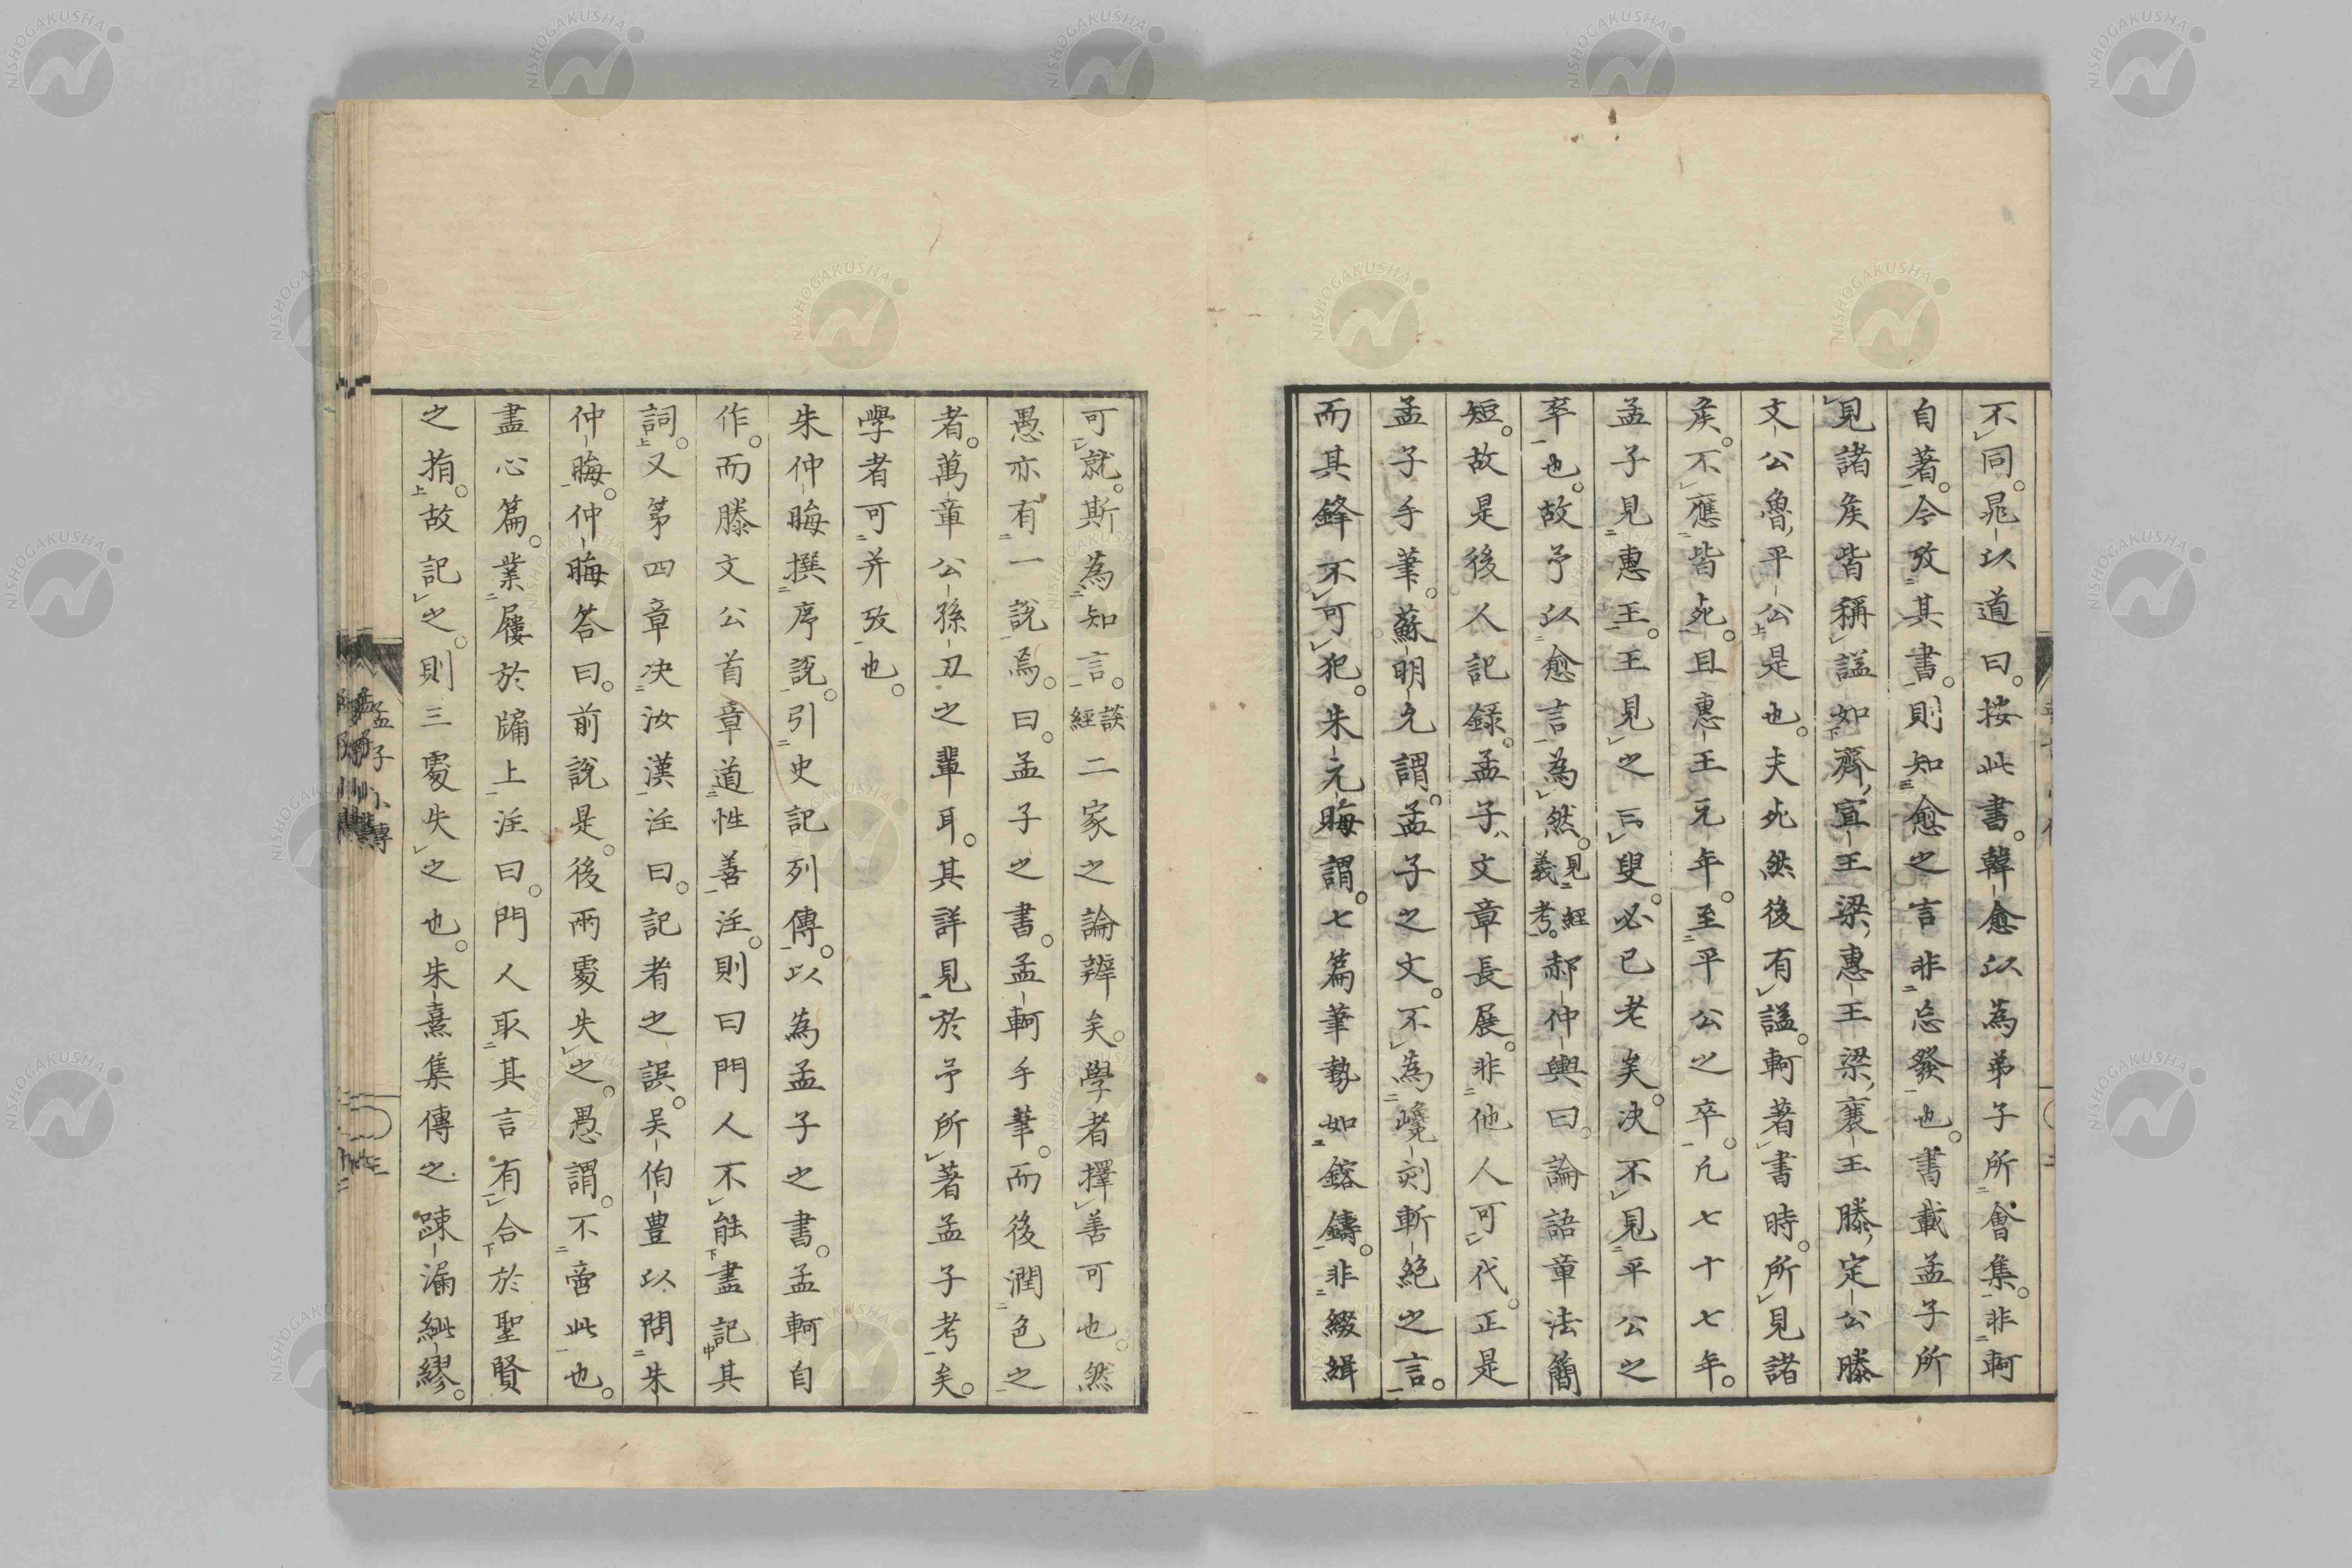 不同。晁以道曰。按此書。韓愈以為弟子所會集。非軻
自著。今攷其書。則知愈之言非忘發也。書載孟子所
見諸矦皆稱謚如齊宣王梁惠王梁襄王滕定公滕
文公魯平公是也。夫死然後有謚。軻著書時。所見諸
矦。不應皆死。且惠王元年。至平公之卒。凢七十七年。
孟子見惠王。王見之曰叟。必已老矣。决不見平公之
卒也。故予以愈言為然。見經義考。郝仲輿曰論語章法簡
短。故是後人記録。孟子文章長展。非他人可代。正是
孟子手筆。蘇明允謂。孟子之文。不為巉刻斬絕之言。
而其鋒不可犯。朱元晦謂。七篇筆勢如鎔鑄。非綴緝
可就。斯為知言。談經二家之論辨矣。學者擇善可也。然
愚亦有一說焉。曰。孟子之書。孟軻手筆。而後潤色之
者。萬章公孫丑之輩耳。其詳見於予所著孟子考矣。
學者可并攷也。
朱仲晦撰序說。引史記列傳。以為孟子之書。孟軻自
作。而滕文公首章道性善注。則曰門人不能盡記其
詞。又第四章决汝漢注曰。記者之誤。吴伯豊以問朱
仲晦。仲晦答曰。前說是。後兩處失之。愚謂。不啻此也。
盡心篇。業屨於牖上注曰。門人取其言有合於聖賢
之指。故記之。則三處失之也。朱熹集傳之踈漏紕繆。
孟子小傳